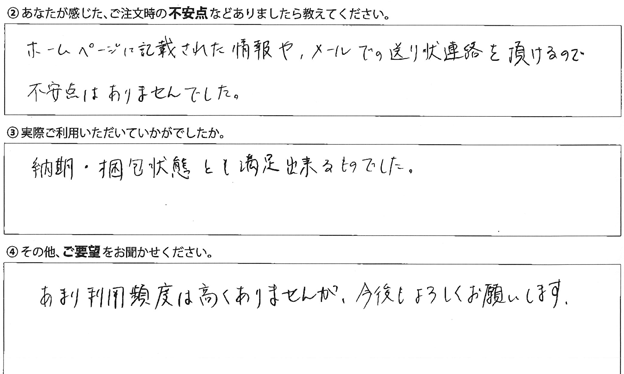 ②あなたが感じた、ご注文時の不安点などありましたら教えてください。
ホームページに記載された情報や、メールでの送り状連絡を頂けるので
不安点はありませんでした。
③実際ご利用いただいていかがでしたか。
納期・梱包状態とも満足出来るものでした。
④その他、ご要望をお聞かせください。
あまり利用頻度は高くありませんが、今後もよろしくお願いします。